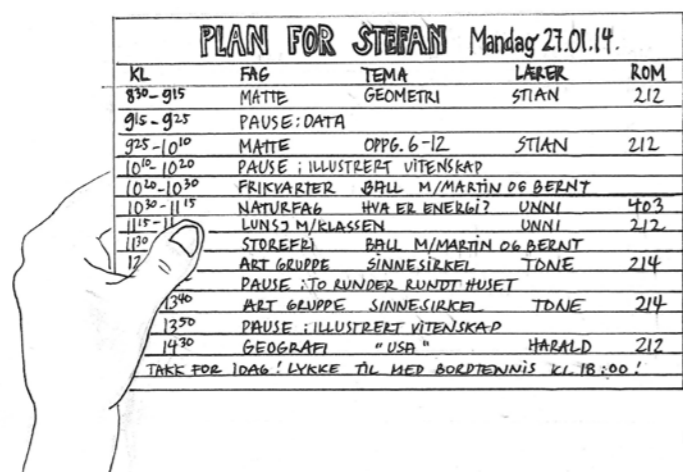 PLAN FOR STEFAN Mandag 27.01.14.
KL FAG TEMA LÆRER ROM
8³⁰-9¹⁵ MATTE GEOMETRI STIAN 212
9¹⁵-9²⁵ PAUSE: DATA
9²⁵-10¹⁰ MATTE OPPG. 6-12 STIAN 212
10¹⁰-10²⁰ PAUSE: ILLUSTRERT VITENSKAP
10²⁰-10³⁰ FRIKVARTER BALL M/MARTIN OG BERNT
10³⁰-11¹⁵ NATURFAG HVA ER ENERGI? UNNI 403
11¹⁵-11 LUNSJ M/KLASSEN UNNI 212
11³⁰ STOREFRI BALL M/MARTIN OG BERNT
12 ART GRUPPE SINNESIRKEL TONE 214
PAUSE: TO RUNDER RUNDT HUSET
13⁴⁰ ART GRUPPE SINNESIRKEL TONE 214
13⁵⁰ PAUSE: ILLUSTRERT VITENSKAP
14³⁰ GEOGRAFI "USA" HARALD 212
TAKK FOR IDAG! LYKKE TIL MED BORDTENNIS KL 18:00!